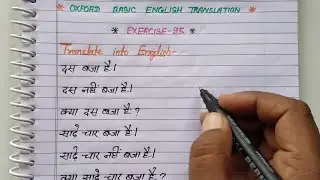 * OXFORD BASIC ENGLISH TRANSLATION *
* EXERCISE-95 *
Translate into English:-
दस बजा है।
दस नहीं बजा है।
क्या दस बजा है ?
साढे चार बजा है।
साढे चार नहीं बजा है।
क्या साढे चार बजा है ?